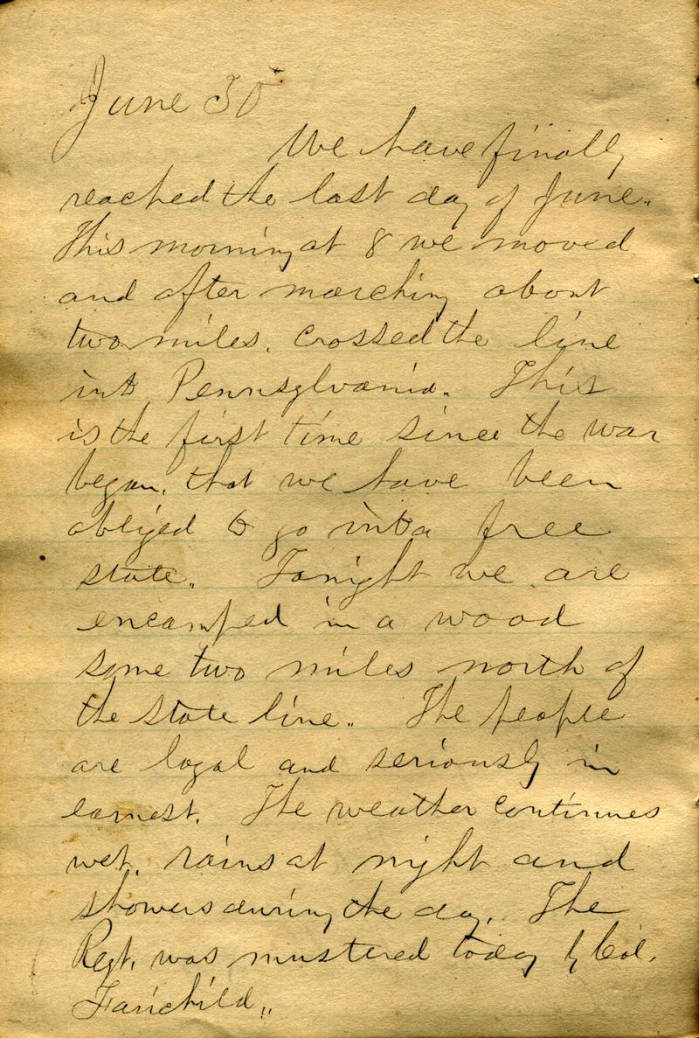 June 30
We have finally
reached the last day of June.
This morning at 8 we moved
and after marching about
two miles, crossed the line
into Pennsylvania. This
is the first time since the war
began, that we have been
obliged to go into a free
state. Tonight we are
encamped in a wood
some two miles north of
the state line. The people
are loyal and seriously in
earnest. The weather continues
wet, rains at night and
showers during the day. The
Regt. was mustered today by Col.
Fairchild.